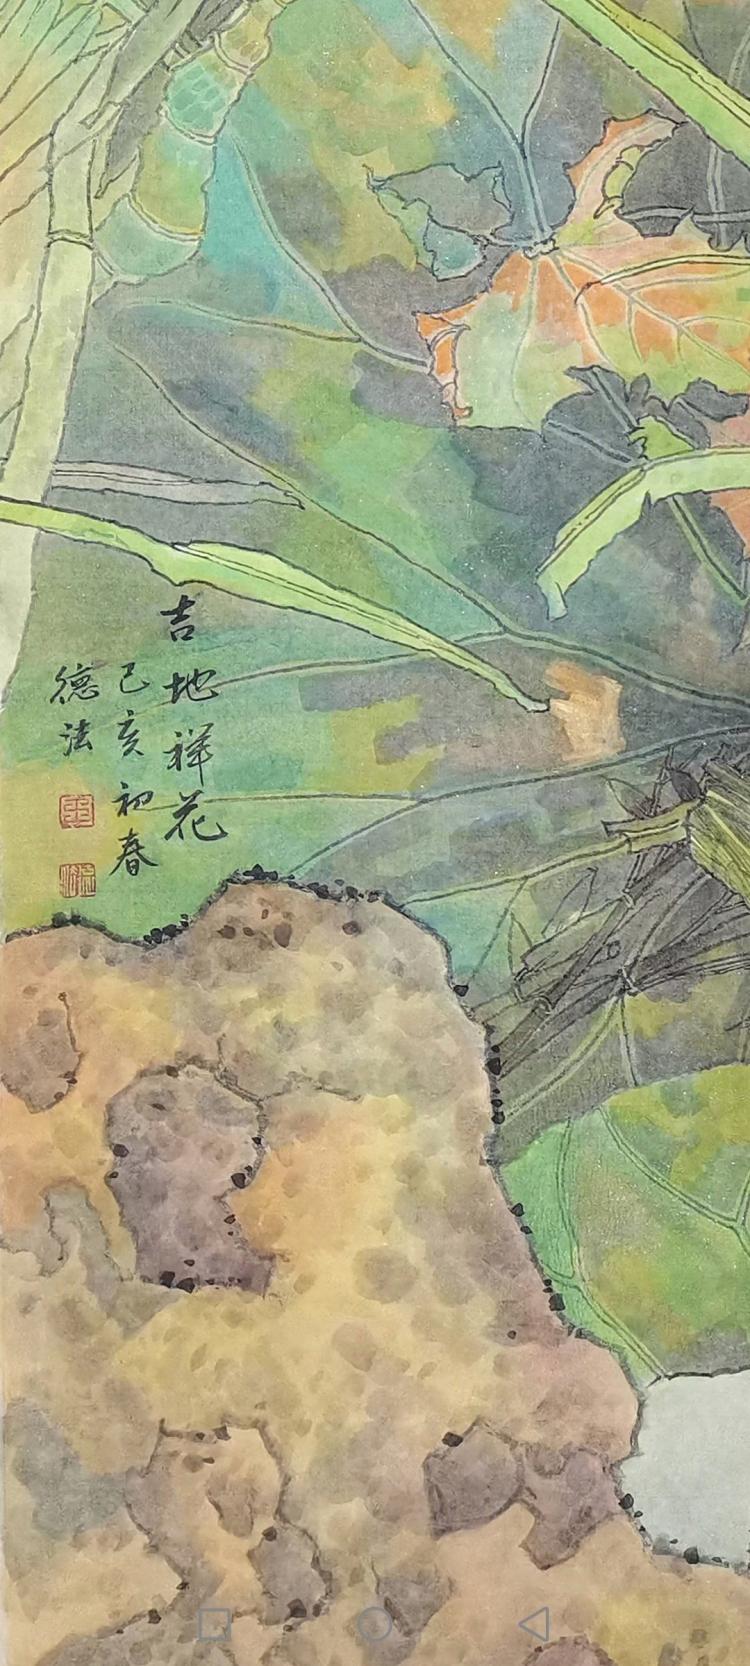 吉地祥花
己亥初春
德法